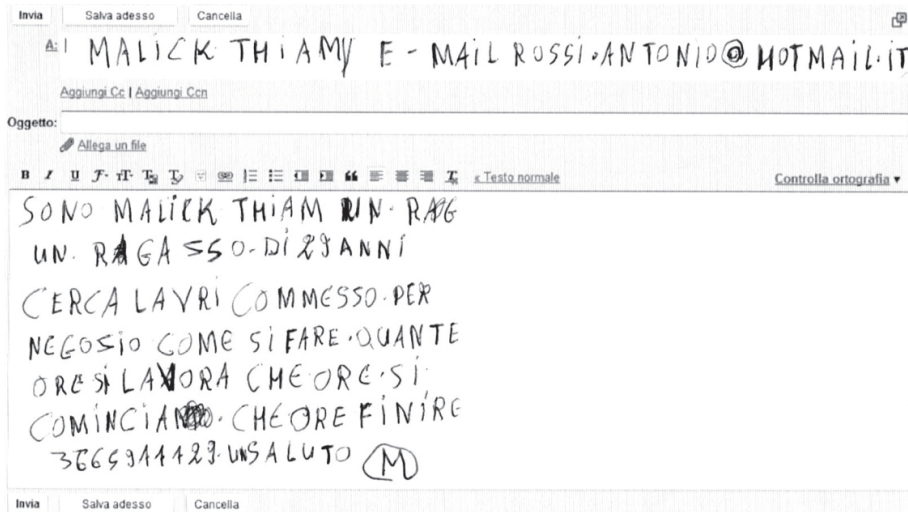 Invia Salva adesso Cancella
A: MALICK THIAM E-MAIL ROSSI.ANTONIO@HOTMAIL.IT
Aggiungi Cc | Aggiungi Ccn
Oggetto:
Allega un file
« Testo normale Controlla ortografia
SONO MALICK THIAM UN. RAG
UN. RAGASSO-DI 29 ANNI
CERCA LAVRI COMMESSO.PER
NEGOSIO COME SI FARE.QUANTE
ORE SI LAVORA CHE ORE.SI
COMINCIA. CHE ORE FINIRE
3665911129.UN SALUTO M
Invia Salva adesso Cancella